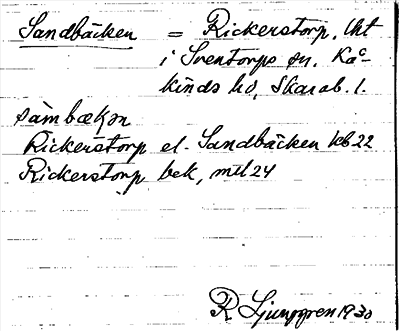 Sandbäcken = Rickerstorp, lht
i Sventorps sn, Kå-
kinds hd, Skarab. l.
sàmbækən
Rickerstorp el. Sandbäcken kb 22
Rickerstorp bek, mtl 24
R Ljunggren 1930